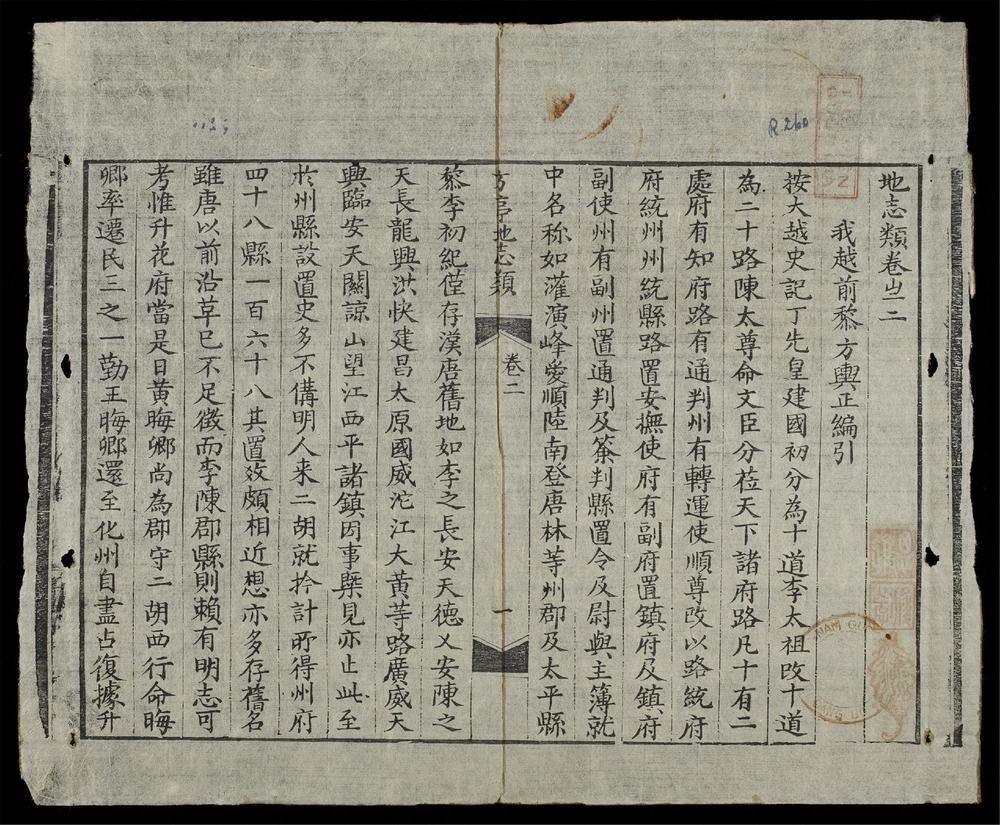 R.260
地志類卷之二
我越前黎方輿正編引
按大越史記丁先皇建國初分為十道李太祖改十道
為二十路陳太尊命文臣分莅天下諸府路凡十有二
處府有知府路有通判州有轉運使順尊改以路統府
府統州州統縣路置安撫使府有副府置鎮府及鎮府
副使州有副州置通判及簽判縣置令及尉與主簿就
中名称如灌演峰愛順陸南登唐林等州郡及太平縣
方亭地志類
卷二
一
黎李初紀僅存漢唐舊地如李之長安天德乂安陳之
天長龍興洪快建昌太原國威沱江大黄等路廣威天
興臨安天關諒山望江西平諸鎮因事槩見亦止此至
於州縣設置史多不備明人来二胡就擒計所得州府
四十八縣一百六十八其置效頗相近想亦多存舊名
雖唐以前沿革已不足徵而李陳郡縣則賴有明志可
考惟升花府當是日黄晦卿尚為郡守二胡西行命晦
卿率遷民三之一勤王晦卿還至化州自盡占復據升